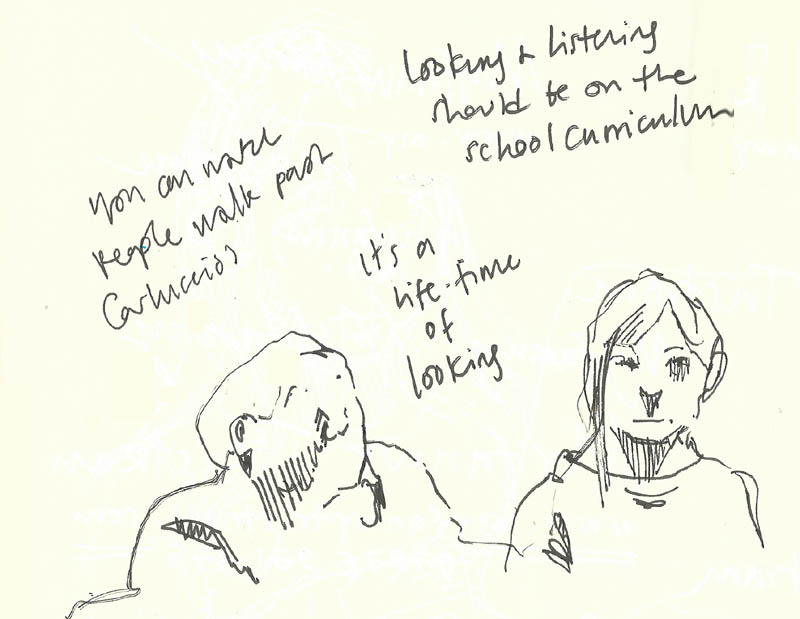 looking & listening
should be on the
school curriculum
you can watch
people walk past
Carluccios
it's a
life-time
of
looking